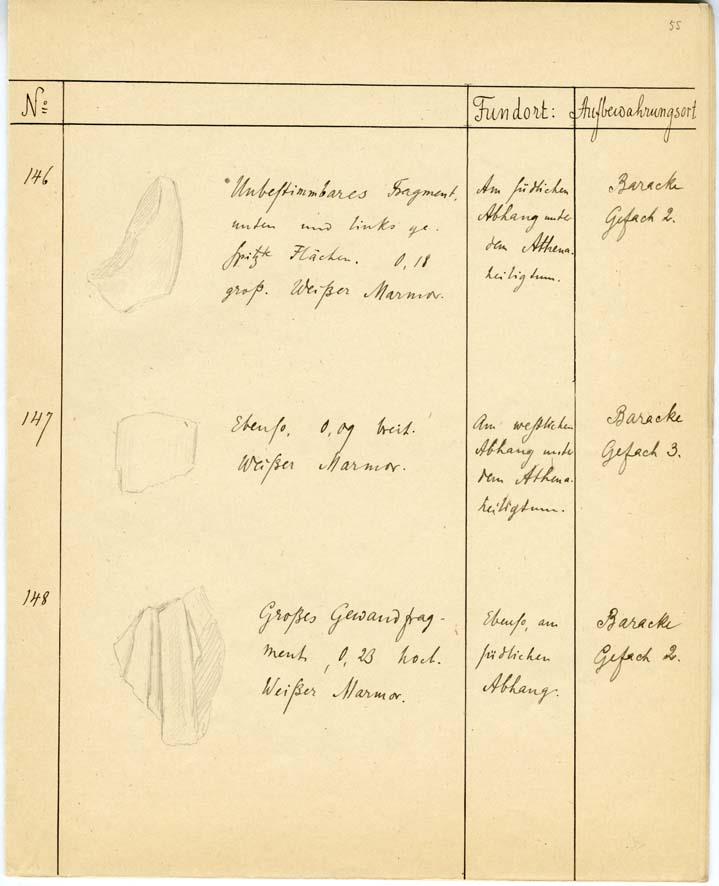 55
No: Fundort: Aufbewahrungsort
146
Unbestimmbares Fragment,
unten und links ge-
spitzte Flächen. 0,18
groß. Weißer Marmor.
Am südlichen
Abhang unter
dem Athena-
heiligtum.
Baracke
Gefach 2.
147
Ebenso, 0,09 breit.
Weißer Marmor.
Am westlichen
Abhang unter
dem Athena-
heiligtum.
Baracke
Gefach 3.
148
Großes Gewandfrag-
ment, 0,23 hoch.
Weißer Marmor.
Ebenso, am
südlichen
Abhang.
Baracke
Gefach 2.